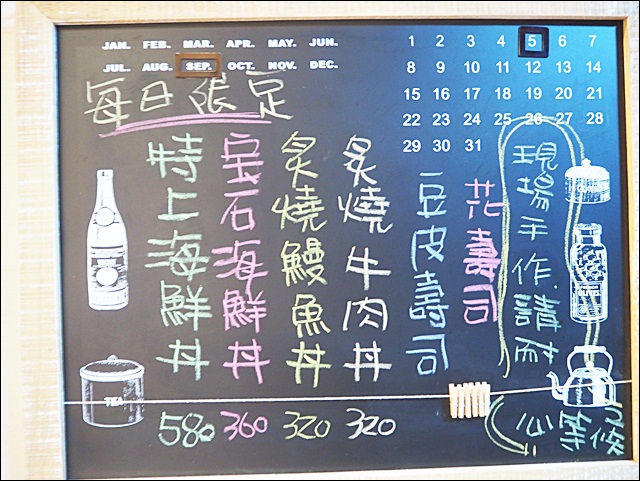 JAN. FEB. MAR. APR. MAY. JUN.
JUL. AUG. SEP. OCT. NOV. DEC.
1 2 3 4 5 6 7
8 9 10 11 12 13 14
15 16 17 18 19 20 21
22 23 24 25 26 27 28
29 30 31
每日限定
現場手作.請耐
心等候
花壽司
豆皮壽司
炙燒牛肉丼 320
炙燒鰻魚丼 320
宝石海鮮丼 360
特上海鮮丼 580
TEA